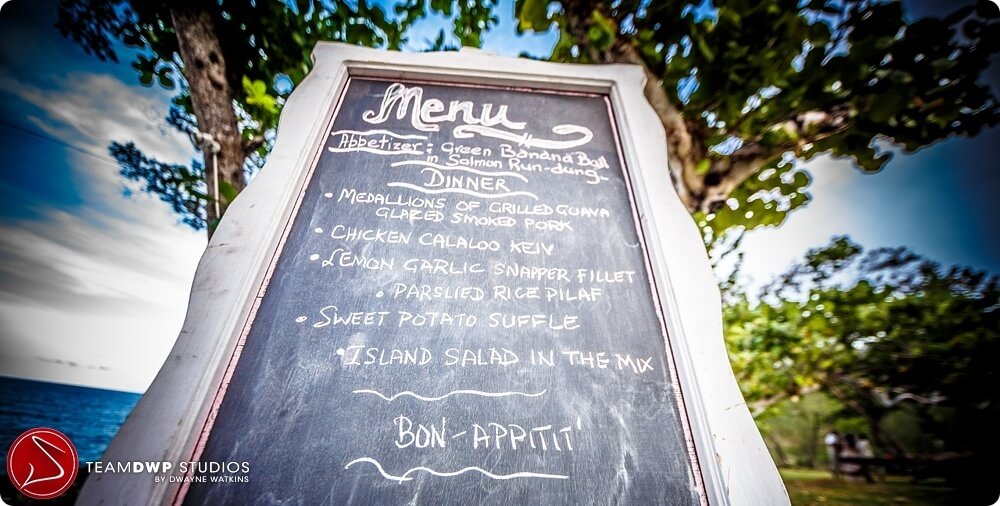 Menu
Appetizer: Green Banana Ball
in Salmon Run-dung
DINNER
• MEDALLIONS OF GRILLED GUAVA
GLAZED SMOKED PORK
• CHICKEN CALALOO KEIV
• LEMON GARLIC SNAPPER FILLET
• PARSLIED RICE PILAF
• SWEET POTATO SUFFLE
• ISLAND SALAD IN THE MIX
BON-APPITIT'
TEAMDWP STUDIOS
BY DWAYNE WATKINS